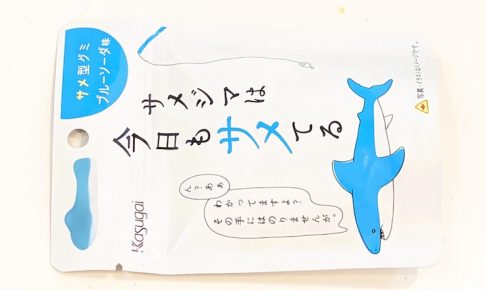 サメ型グミ
ブルーソーダ味
サメジマは
今日もサメてる
ん？ああ
わかってますよ？
その手にはのりませんが。
Kasugai
写真・イラストはイメージです。